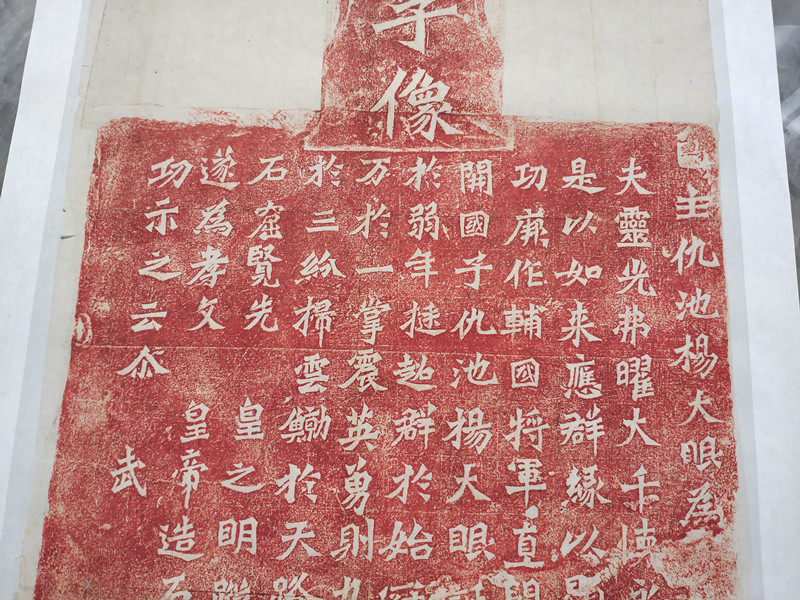 子像
邑主仇池楊大眼為
夫靈光弗曜大千懐永
是以如來應群緣以顯
功廕作輔國将軍直閤
開國子仇池楊大眼誕
於弱年挺超群於始
万於一掌震英勇則九
於三紛掃雲鯨於天路
石窟覽先皇之明蹤
遂為孝文皇帝造石
功示之云尒武